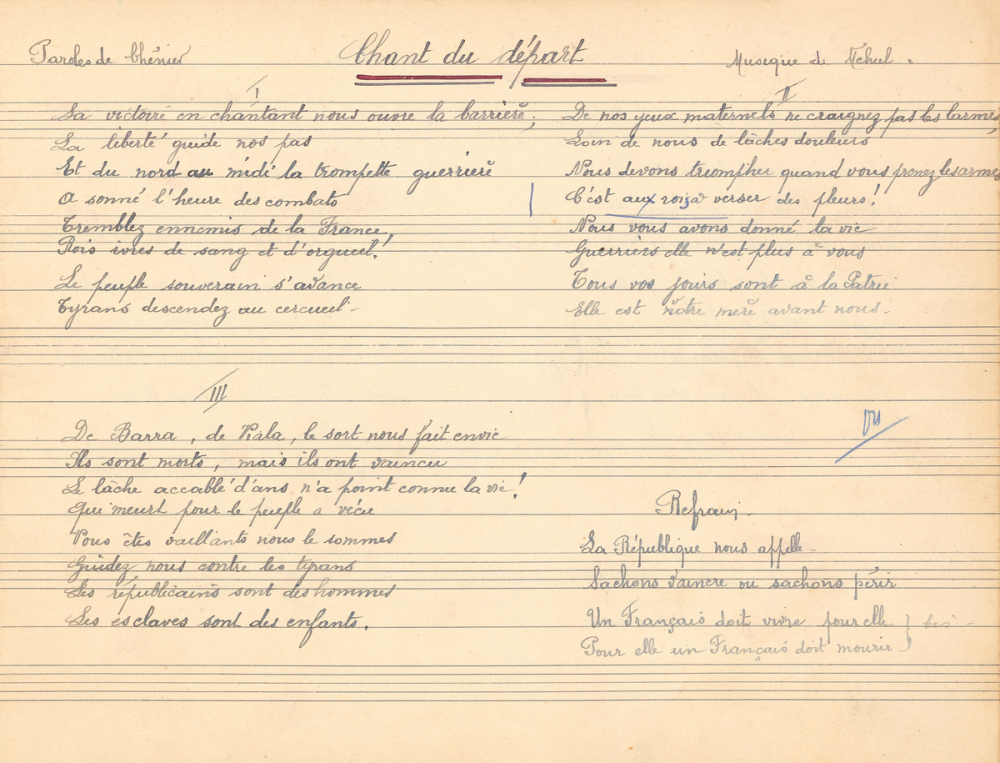 Paroles de Chénier
Chant du départ
Musique de Mehul.
I
La victoire en chantant nous ouvre la barrière;
La liberté guide nos pas
Et du nord au midi la trompette guerrière
A sonné l'heure des combats
Tremblez ennemis de la France,
Rois ivres de sang et d'orgueil!
Le peuple souverain s'avance
Tyrans descendez au cercueil-
II
De nos yeux maternels ne craignez pas les larmes,
Loin de nous de lâches douleurs
Nous devons triompher quand vous prenez les armes
C'est aux rois à verser des fleurs!
Nous vous avons donné la vie
Guerriers elle n'est plus à vous
Tous vos jours sont à la Patrie
Elle est nôtre mère avant nous-
III
De Barra, de Viala, le sort nous fait envie
Ils sont morts, mais ils ont vaincu
Le lâche accablé d'ans n'a point connu la vie!
Qui meurt pour le peuple a vécu
Vous êtes vaillants nous le sommes
Guidez nous contre les tyrans
Les républicains sont des hommes
Les esclaves sont des enfants.
Vu
Refrain-
La République nous appelle-
Sachons vaincre ou sachons périr
Un Français doit vivre pour elle } bis-
Pour elle un Français doit mourir